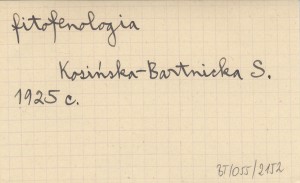 fitofenologia
Kosińska-Bartnicka S.
1925 c.
BT/055/2152